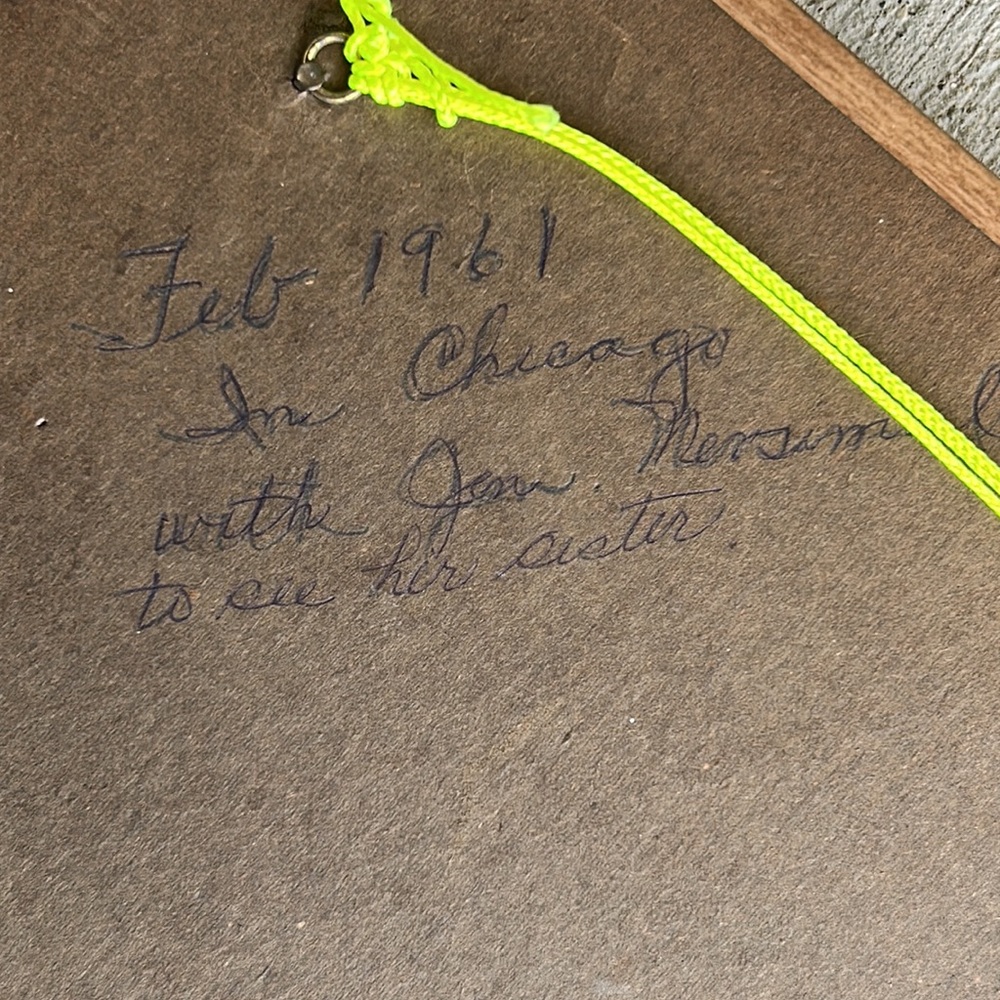 Feb 1961
In Chicago
with Jem.
to see her sister.